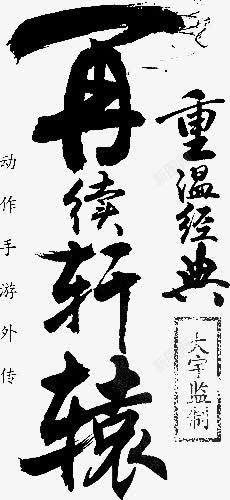 重温经典
再续轩辕
动作手游外传
大宇监制